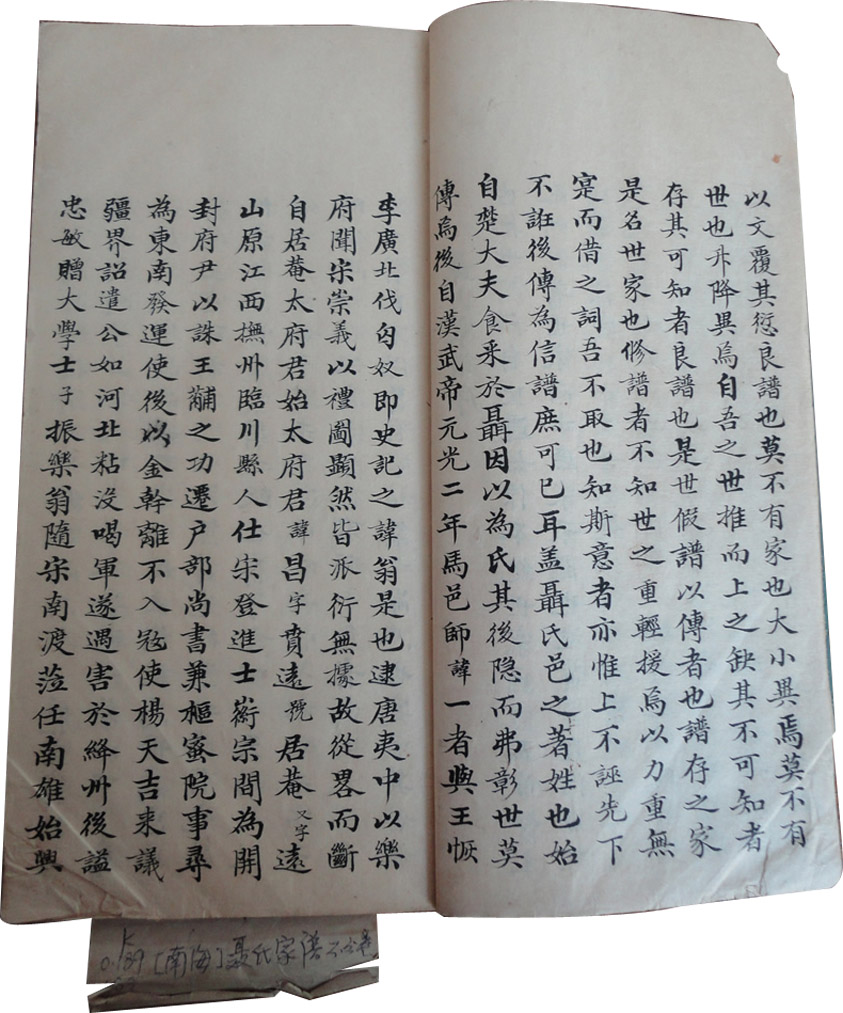 以文覆其愆良譜也莫不有家也大小異焉莫不有
世也升降異焉自吾之世推而上之缺其不可知者
存其可知者良譜也是世假譜以傳者也譜存之家
是名世家也修譜者不知世之重輕援焉以力重無
寔而借之詞吾不取也知斯意者亦惟上不誣先下
不誑後傳為信譜庶可已耳盖聶氏邑之著姓也始
自楚大夫食采於聶因以為氏其後隐而弗彰世莫
傳焉後自漢武帝元光二年馬邑師諱一者與王恢
李廣北伐匈奴即史記之諱翁是也逮唐夷中以樂
府聞宋崇義以禮圖顯然皆派衍無據故從畧而斷
自居菴太府君始太府君諱昌字賁遠號居菴又字遠
山原江西撫州臨川縣人仕宋登進士蔪宗間為開
封府尹以誅王黼之功遷户部尚書兼樞密院事尋
為東南發運使後以金幹離不入宼使楊天吉来議
疆界詔遣公如河北粘没喝軍遂遇害於絳州後謚
忠敏贈大學士子振樂翁隨宋南渡蒞任南雄始興
0.189 [南海]聂氏家谱不分卷